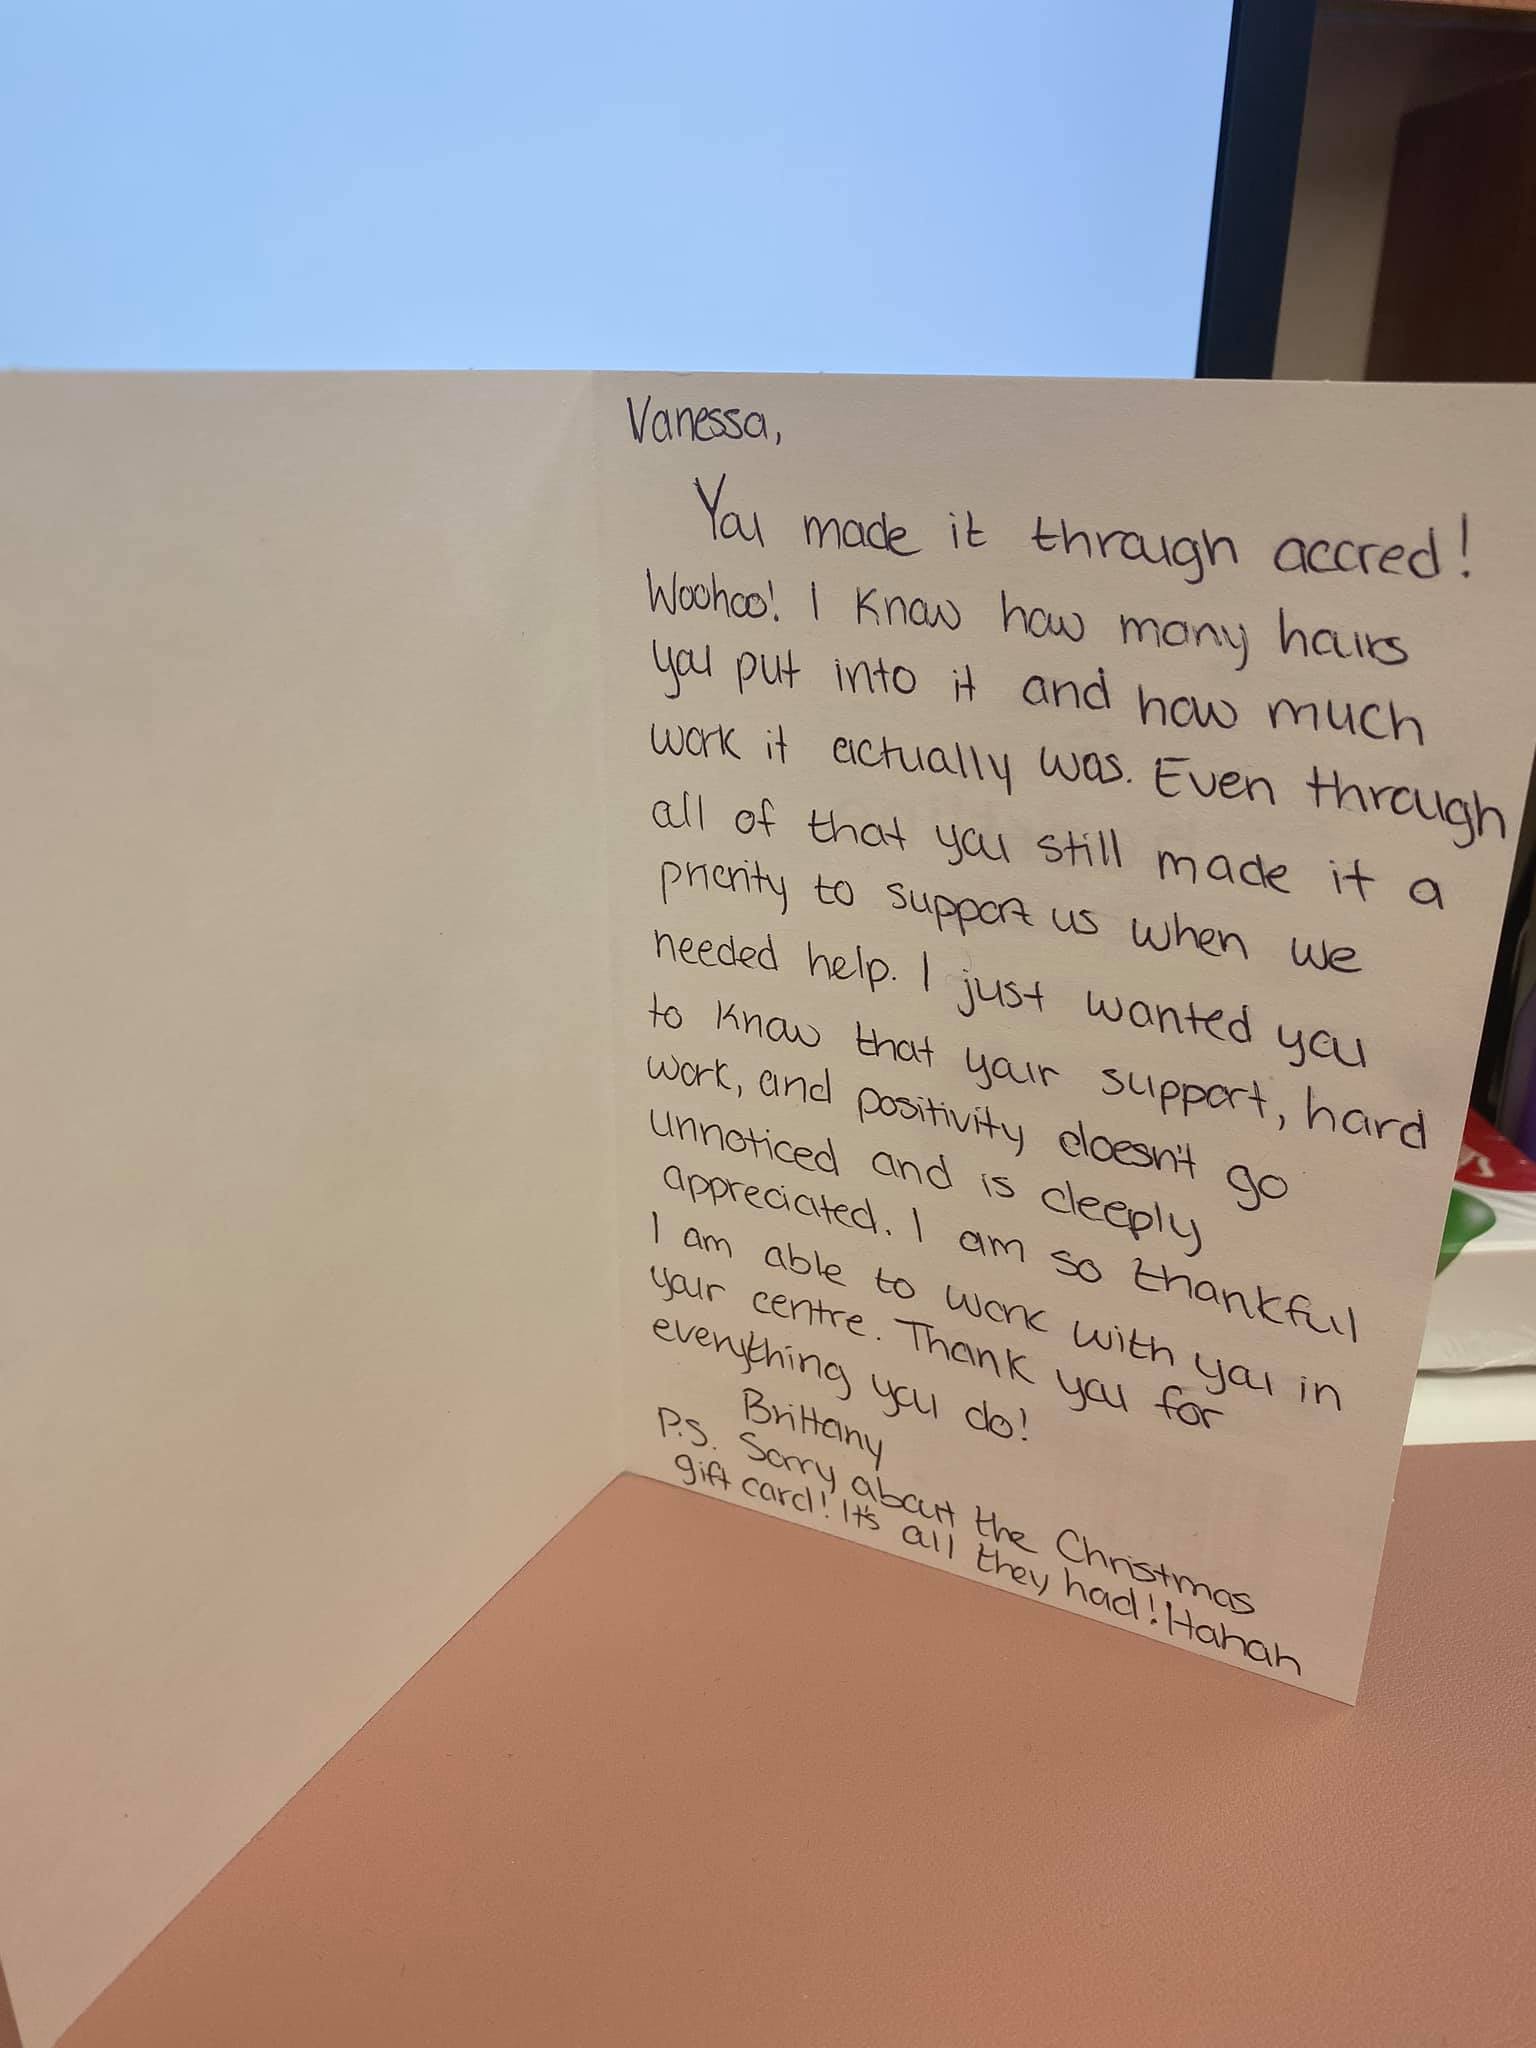 Vanessa,
You made it through accred!
Woohoo! I know how many hours
you put into it and how much
work it actually was. Even through
all of that you still made it a
priority to support us when we
needed help. I just wanted you
to know that your support, hard
work, and positivity doesn't go
unnoticed and is deeply
appreciated. I am so thankful
I am able to work with you in
your centre. Thank you for
everything you do!
Brittany
P.S. Sorry about the Christmas
gift card! It's all they had! Hahah